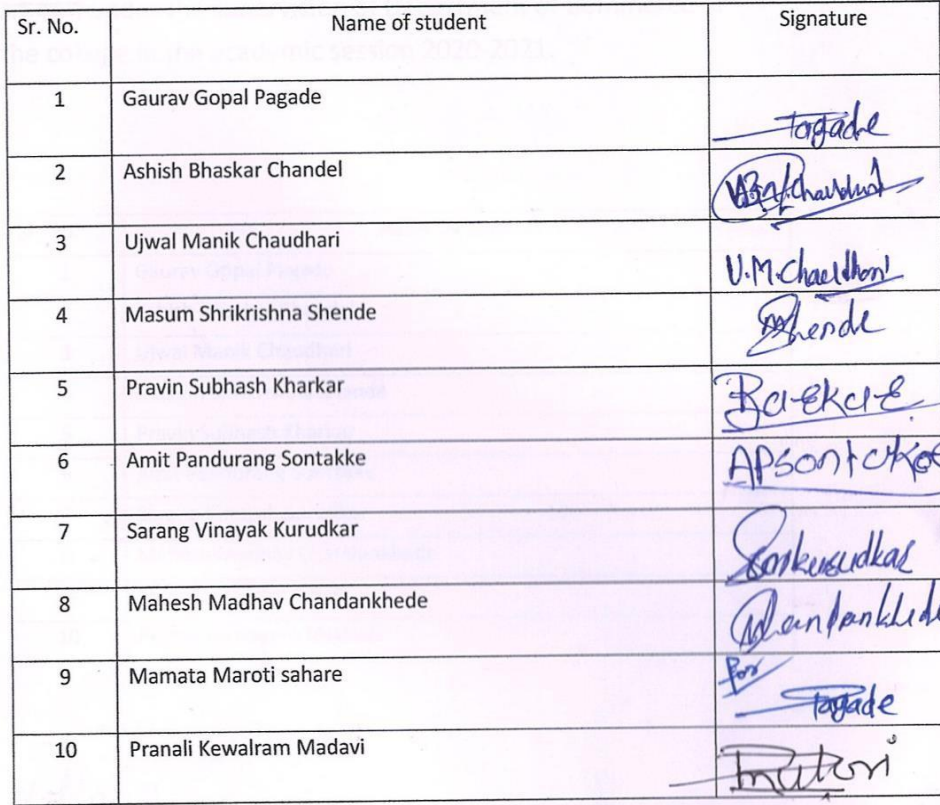 the college in the academic session 2020-2021.
Sr. No. Name of student Signature
1 Gaurav Gopal Pagade Pagade
2 Ashish Bhaskar Chandel
3 Ujwal Manik Chaudhari U.M.Chaudhari
4 Masum Shrikrishna Shende Shende
5 Pravin Subhash Kharkar
6 Amit Pandurang Sontakke APSontakke
7 Sarang Vinayak Kurudkar
8 Mahesh Madhav Chandankhede Chandankhede
9 Mamata Maroti sahare For Pagade
10 Pranali Kewalram Madavi